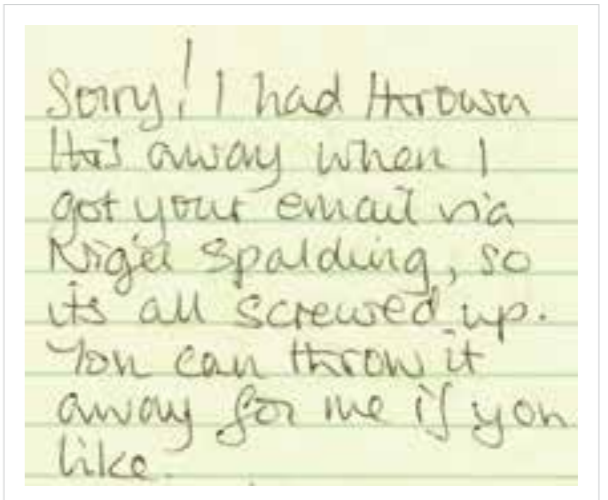 Sorry! I had thrown
this away when I
got your email via
Nigel Spalding, so
its all screwed up.
You can throw it
away for me if you
like.